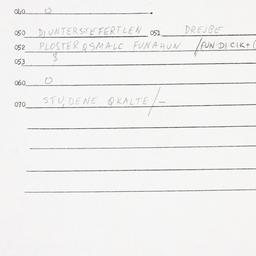 040 0
050 DIUNTERSTEFERTLEN 051 DREJBE
052 PLOSTER QSMALC FUNAHUN /FUN:DICIK+(
053 8
060 0
070 STU,DENE QKALTE/-